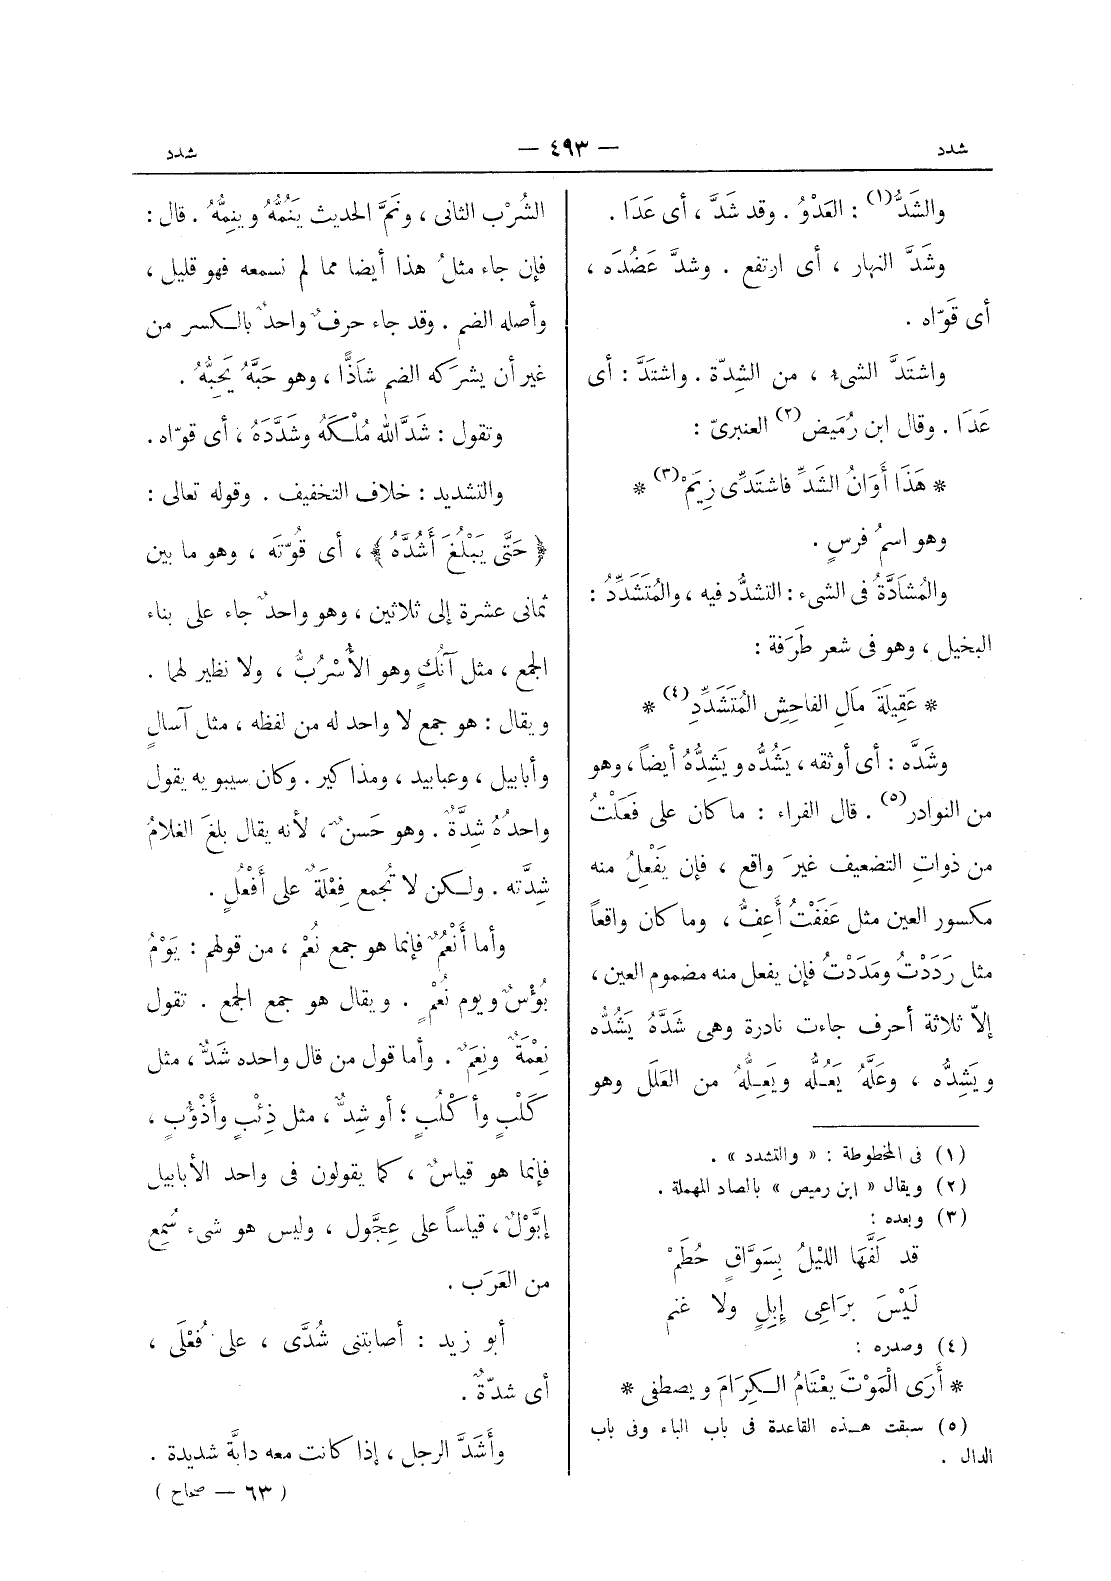 شدد — ٤٩٣ — شدد
والشَدُّ(١) : العَدْوُ . وقد شَدَّ ، أى عَدَا .
وشَدَّ النهار ، أى ارتفع . وشدَّ عَضُدَه ،
أى قَوّاه .
واشتَدَّ الشىء ، من الشِدّة . واشتَدَّ : أى
عَدَا . وقال ابن رُمَيض(٢) العنبرىّ :
* هَذَا أَوَانُ الشَدِّ فاشتَدِّى زِيَمْ(٣) *
وهو اسمُ فرسٍ .
والمُشادَّةُ فى الشىء : التشدُّد فيه ، والمُتَشَدِّدُ :
البخيل ، وهو فى شعر طَرَفة :
* عَقِيلَةَ مَالِ الفاحِشِ المُتَشَدِّدِ(٤) *
وشَدَّه : أى أوثقه ، يَشُدُّه ويَشِدُّهُ أيضاً ، وهو
من النوادر(٥) . قال الفراء : ما كان على فَعَلْتُ
من ذواتِ التضعيف غيرَ واقع ، فإن يَفْعِلُ منه
مكسور العين مثل عَفَفْتُ أَعِفُّ ، وما كان واقعاً
مثل رَدَدْتُ ومَدَدْتُ فإن يفعل منه مضموم العين ،
إلاّ ثلاثة أحرف جاءت نادرة وهى شَدَّهُ يَشُدُّه
ويَشِدُّه ، وعَلَّهُ يَعُلُّه ويَعِلُّهُ من العَلَل وهو
(١) فى المخطوطة : « والتشدد » .
(٢) ويقال « ابن رميص » بالصاد المهملة .
(٣) وبعده :
قد لَفَّهَا الليْلُ بِسَوَّاقٍ حُطَمْ
لَيْسَ بِرَاعِى إِبِلٍ ولا غنم
(٤) وصدره :
* أَرَى الْمَوْتَ يعْتَامُ الكِرَامَ ويصطفى *
(٥) سبقت هذه القاعدة فى باب الباء وفى باب
الدال .
الشُرْب الثانى ، ونَمَّ الحديث يَنُمُّهُ وينِمُّهُ . قال :
فإن جاء مثلُ هذا أيضا مما لم نسمعه فهو قليل ،
وأصله الضم . وقد جاء حرفٌ واحدٌ بالكسر من
غير أن يشرَكه الضم شاَذًّا ، وهو حَبَّهُ يَحِبُّهُ .
وتقول : شَدَّ الله مُلْكَهُ وشَدَّدَهُ ، أى قوّاه .
والتشديد : خلاف التخفيف . وقوله تعالى :
﴿ حَتَّى يَبْلُغَ أَشُدَّهُ ﴾ ، أى قُوّتَه ، وهو ما بين
ثمانى عشرة إلى ثلاثين ، وهو واحدٌ جاء على بناء
الجمع ، مثل آنُكٍ وهو الأُسْرُبُّ ، ولا نظير لهما .
ويقال : هو جمع لا واحد له من لفظه ، مثل آسالٍ
وأبابيل ، وعبابيد ، ومذاكير . وكان سيبويه يقول
واحدُهُ شِدَّةٌ . وهو حَسنٌ ، لأنه يقال بلغَ الغلامُ
شِدَّته . ولكن لا تُجمع فِعْلَةٌ على أَفْعُلٍ .
وأما أَنْعُمٌ فإنما هو جمع نُعْم ، من قولهم : يَوْمُ
بُوُْسٌ ويوم نُعْمٍ . ويقال هو جمع الجمع . تقول
نِعْمَةٌ ونِعَمٌ . وأما قول من قال واحده شَدٌّ ، مثل
كَلْبٍ وأكْلُبٍ ؛ أو شِدٌّ ، مثل ذِئْبٍ وأَذْؤُبٍ ،
فإنما هو قياسٌ ، كما يقولون فى واحد الأبابيل
إبَّوْلٌ ، قياساً على عِجَّول ، وليس هو شىء سُمِع
من العَرَب .
أبو زيد : أصابتنى شُدَّى ، على فُعْلَى ،
أى شدّةٌ .
وأَشَدَّ الرجل ، إذا كانت معه دابَّة شديدة .
( ٦٣ — صحاح )